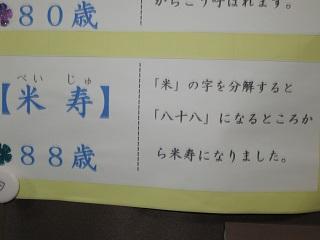 ８０歳
からこう呼ばれます。
べい じゅ
【米 寿】
８８歳
「米」の字を分解すると
「八十八」になるところか
ら米寿になりました。